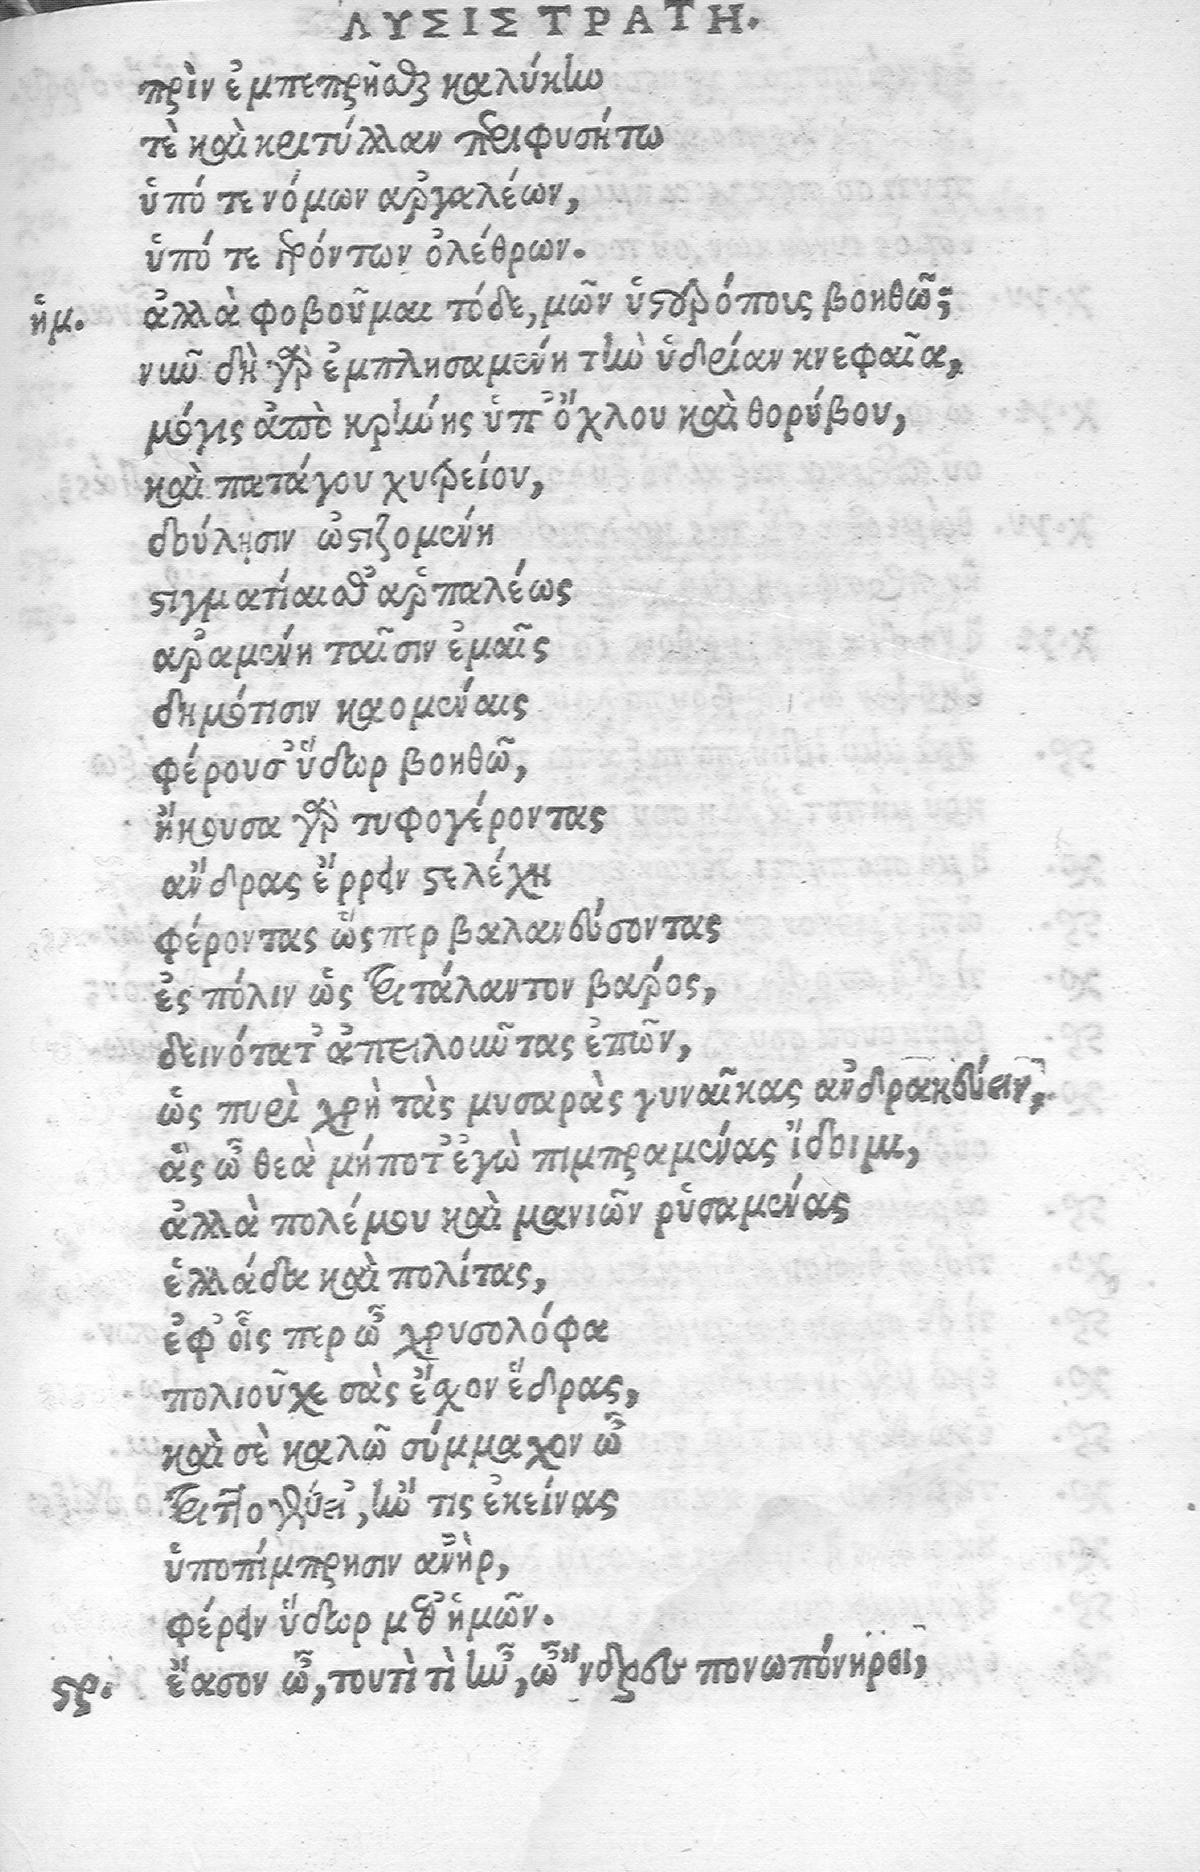 ΛΥΣΙΣΤΡΑΤΗ.
πρὶν ἐμπεπρῆσθαι καλύκην
τὲ καὶ κριτύλλαν περιφυσήτω
ὑπό τε νόμων αργαλέων,
ὑπό τε γερόντων ὀλέθρων.
ἡμ. ἀλλὰ φοβοῦμαι τόδε, μῶν ὑστερόπους βοηθῶ;
νῦν δὴ γὰρ ἐμπλησαμένη τὴν ὑδρίαν κνεφαῖα,
μόγις ἀπὸ κρήνης ὑπ' ὄχλου καὶ θορύβου,
καὶ πατάγου χυτρείου,
δούλῃσιν ὠστιζομένη
στιγματίαισθ' αρπαλέως
αραμένη ταῖσιν ἐμαῖς
δημότισιν καομέναις
φέρουσ' ὕδωρ βοηθῶ,
ἤκουσα γὰρ τυφογέροντας
ανδρας ἔρρειν στελέχη
φέροντας ὥσπερ βαλανεύσοντας
ἐς πόλιν ὡς τριτάλαντον βαρος,
δεινότατ' ἀπειλοῦντας ἐπῶν,
ὡς πυρὶ χρὴ τὰς μυσαρὰς γυναῖκας ανδρακεύειν,
ἃς ὦ θεὰ μήποτ' ἐγὼ πιμπραμένας ἴδοιμι,
ἀλλὰ πολέμου καὶ μανιῶν ῥυσαμένας
ἑλλάδα καὶ πολίτας,
ἐφ' οἷς περ ὦ χρυσολόφα
πολιοῦχε σὰς ἔχον ἕδρας,
καὶ σὲ καλῶ σύμμαχον ὦ
τριτογένει', ἤν τις ἐκείνας
ὑποπίμπρησιν ανὴρ,
φέρειν ὕδωρ μεθ' ἡμῶν.
στρ. ἔασον ὦ, τουτὶ τὶ ἦν, ὦ 'νδρες πονωπόνηροι,